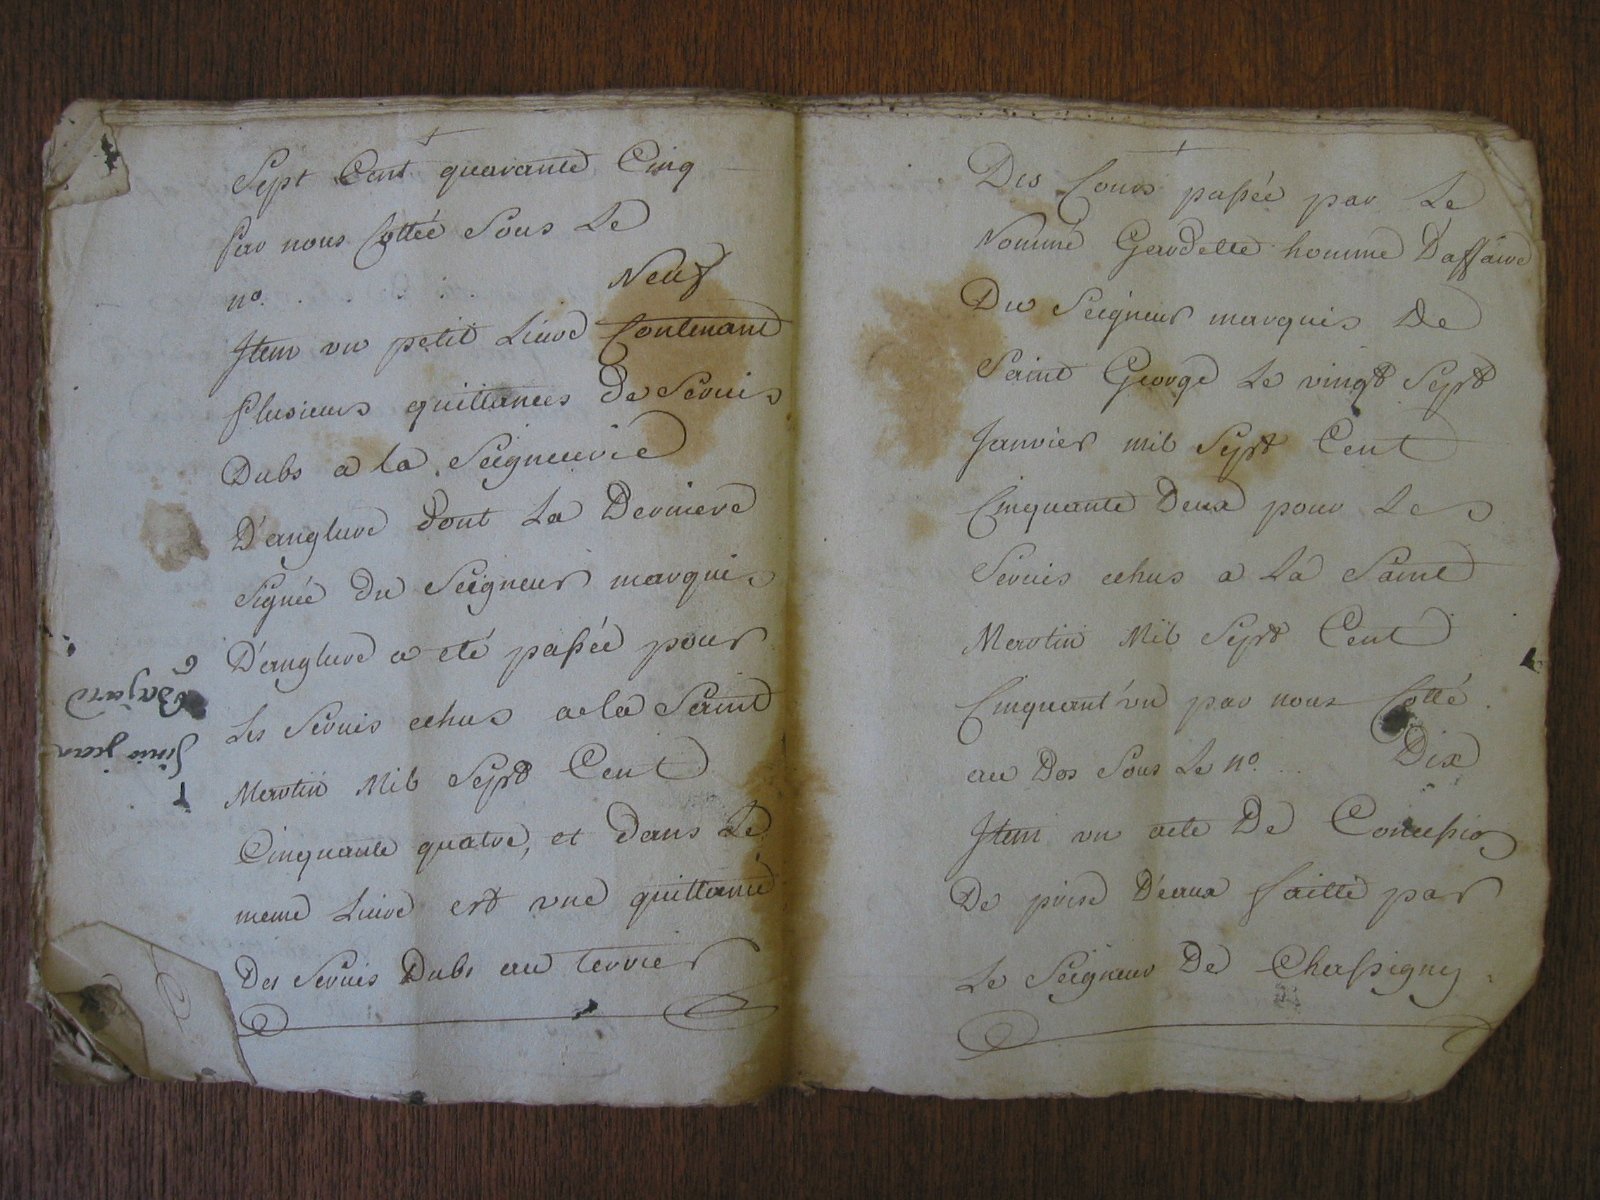 Sept Cent quarante Cinq
par nous Cottée Sous Le
n°. . . . . . . Neuf
Item un petit Livre Contenant
plusieurs quittances De Servis
Dubs a la Seigneurie
D'anglure dont La Derniere
Signée du Seigneur marquis
D'anglure a eté passée pour
Les Servis echus a la Saint
Martin Mil Sept Cent
Cinquante quatre, et dans Le
meme Livre est une quittance
Des Servis Dubs au terrier
Bajard
jean
Des Cours passée par Le
Nommé Gardette homme D'affaire
Du Seigneur marquis De
Saint George Le vingt Sept
Janvier mil Sept Cent
Cinquante Deux pour Les
Servis echus a La Saint
Martin Mil Sept Cent
Cinquant'un par nous Cotté
au Dos Sous Le n°. . . Dix
Item un acte De Concession
De prise D'eaux faitte par
Le Seigneur De Chassigny